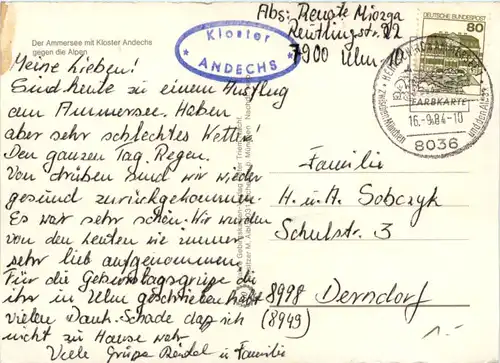 Der Ammersee mit Kloster Andechs
gegen die Alpen
Kloster
* ANDECHS *
Abs: Renate Miozga
Reutlingstr. 22
7900 Ulm 10
DEUTSCHE BUNDESPOST
80
FARBKARTE
16.-9.84-10
8036
Meine Lieben!
Sind heute zu einem Ausflug
am Ammersee. Haben
aber sehr schlechtes Wetter!
Den ganzen Tag Regen.
Von drüben sind wir wieder
gesund zurückgekommen.
Es war sehr schön. Wir wurden
von den Leuten wie immer
sehr lieb aufgenommen.
Für die Geburtstagsgrüße die
ihr in Ulm geschrieben habt
vielen Dank. Schade daß ich
nicht zu Hause war.
Viele Grüße und Familie
Familie
H. u. A. Sobczyk
Schulstr. 3
8998 Derndorf
(8949)
1.-